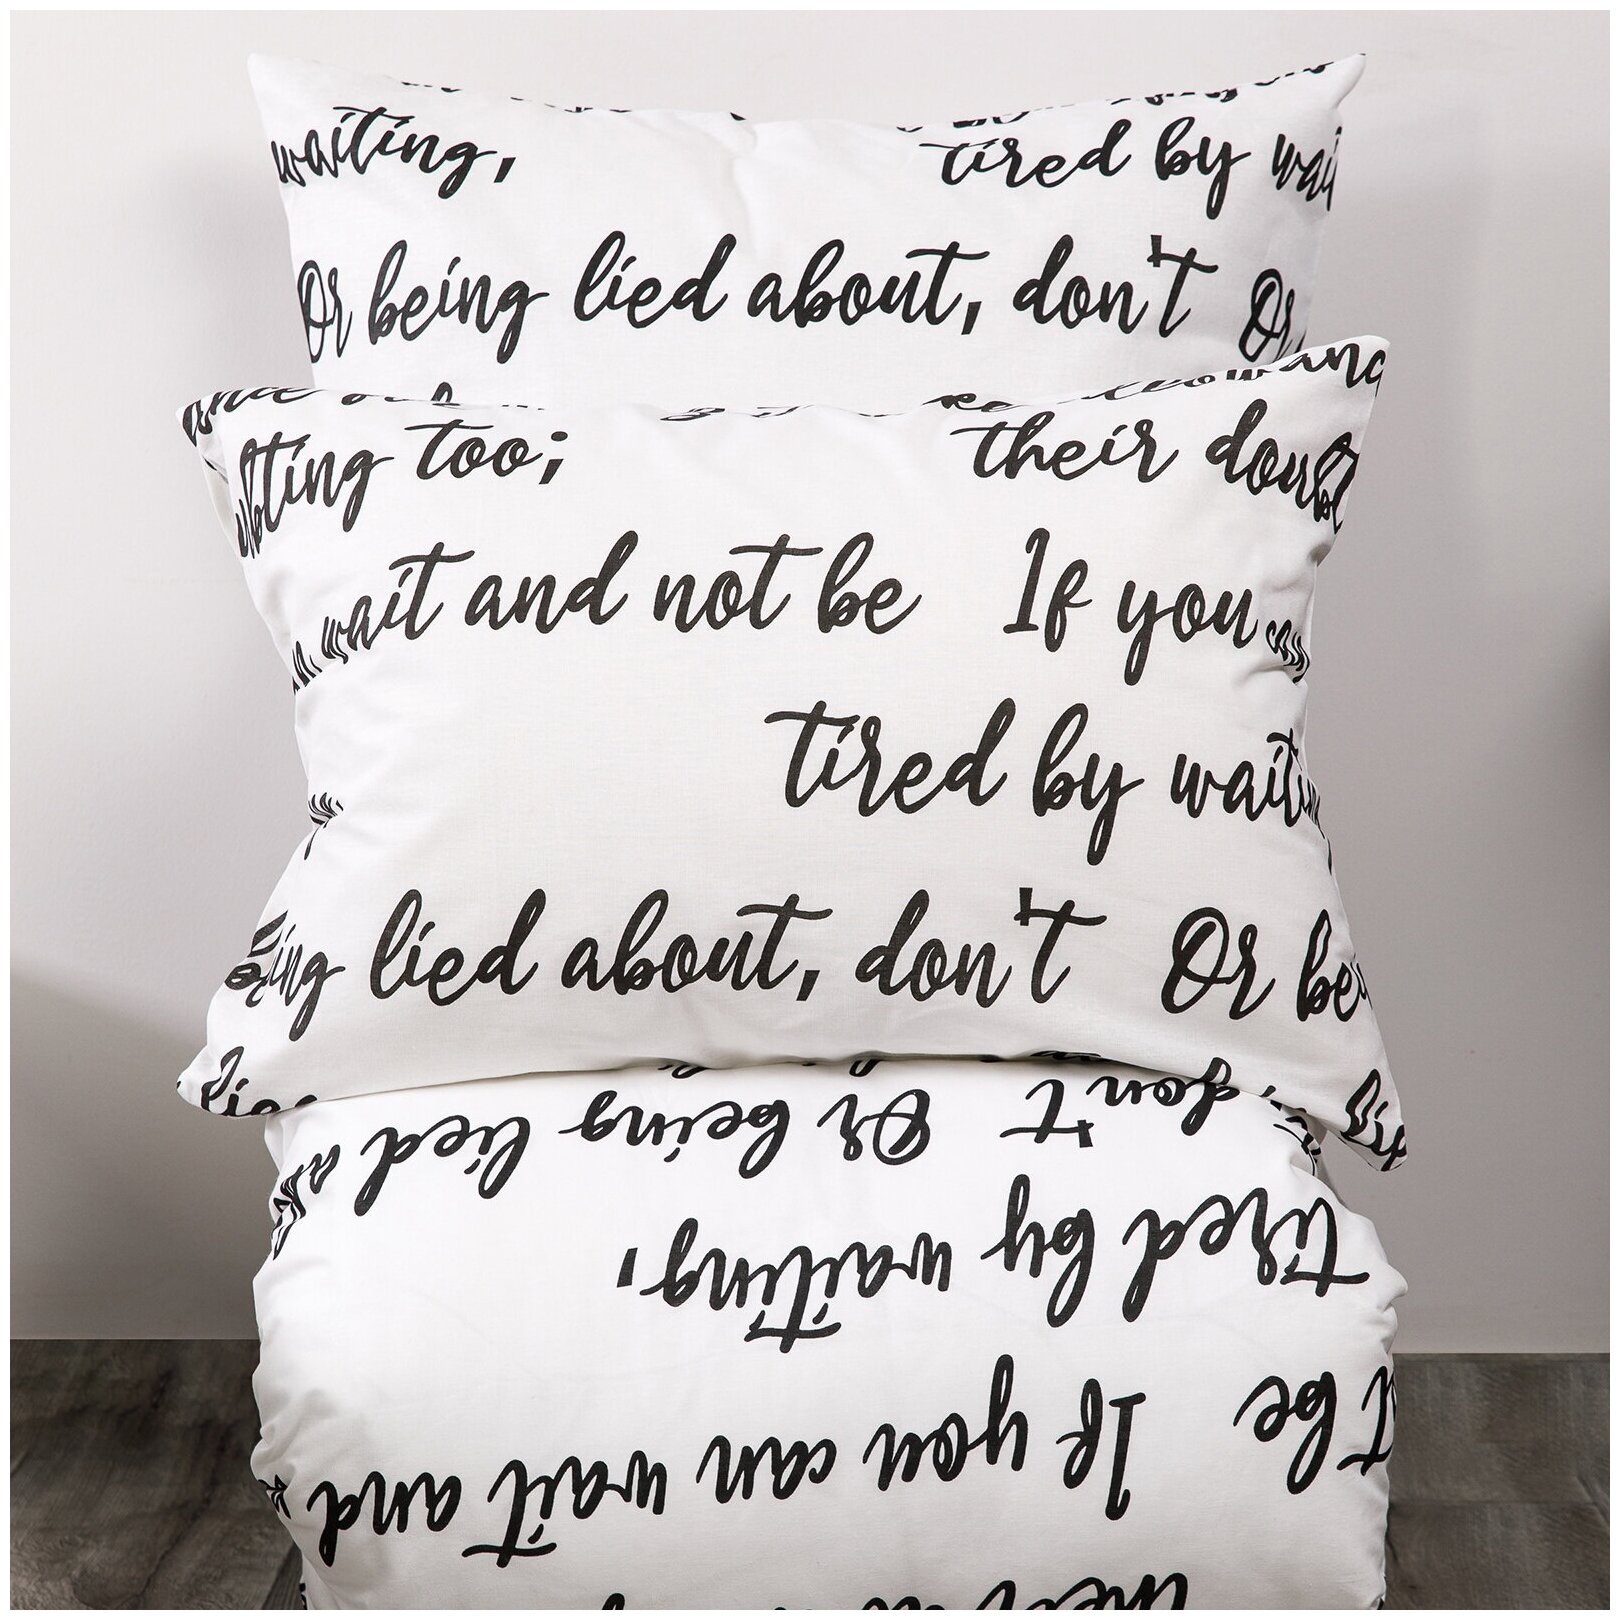 waiting, tired by
Or being lied about, don't Or
too; their
wait and not be If you
tired by
lied about, don't Or
don't Or being lied
tired by waiting,
be If you can wait and